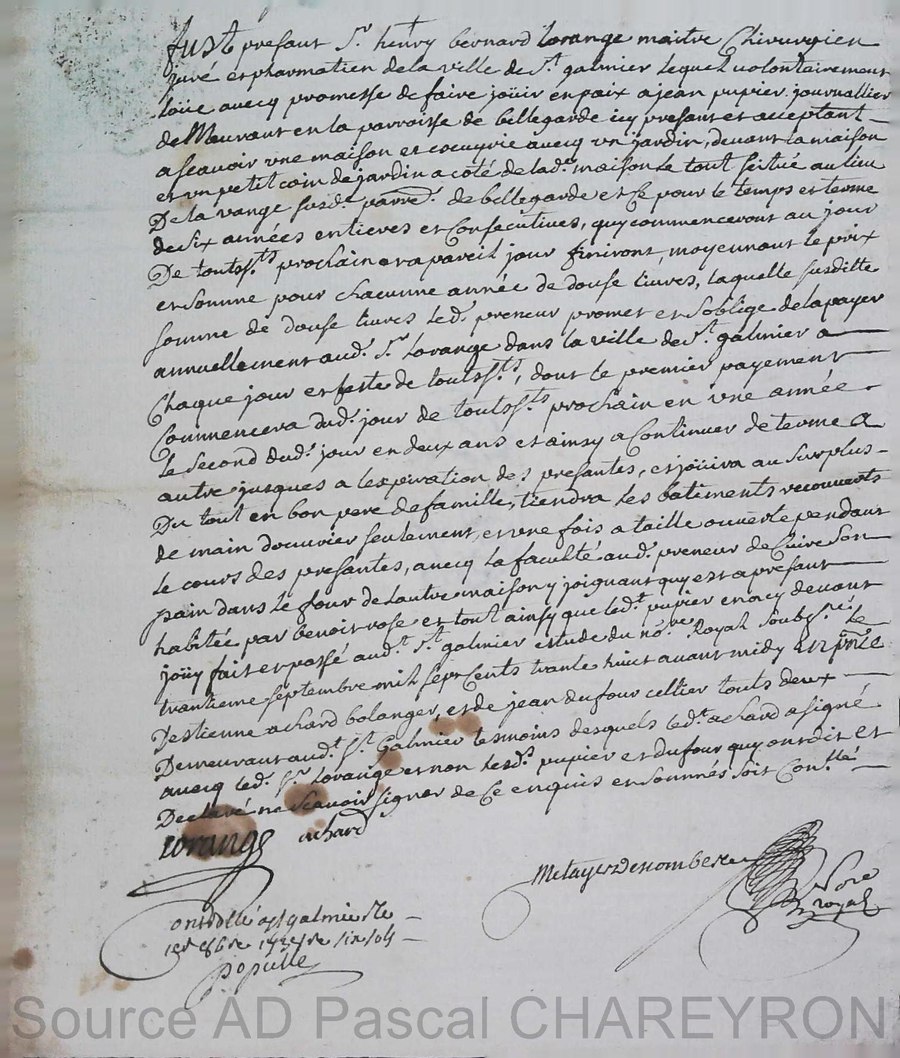 fust présant Sr. henry bernard lorange maitre Chirurgien
juré et pharmatien de la ville de St. galmier lequel volontairement
loüe avecq promesse de faire joüir en paix a jean pupier journallier
de Meurant en la parroisse de bellegarde icy présant et acceptant
a scavoir une maison et ecuyrie avecq un jardin, devant la maison
et un petit coin de jardin a côté de lade. maison le tout scitué au lieu
De la vange susde. parre. de bellegarde et Ce pour le temps et terme
de six années entieres et Consécutives, quy commenceront au jour
De toutssts prochain et a pareil jour finiront, moyennant le prix
et Somme pour chacunne année de douse livres, laquelle susditte
somme de douse livres led. preneur promet et s'oblige de la payer
annuellement aud. Sr. Lorange dans la ville de St. galmier a
Chaque jour et feste de toutssts, dont le premier payement
Commencera dud. jour de toutssts prochain en une année
le second dud. jour en deux ans et ainsy a Continuer de terme a
autre jusques a lexpiration des présantes, et joüira au surplus
Du tout en bon pere de famille, tiendra les batiments recouverts
de main douvrier seulement, et une fois a taille ouverte pendant
le cours des présantes, avecq la faculté aud. preneur de Cuire son
pain dans le four de lautre maison y joignant quy est a présant
habitée par benoit rose et tout ainsy que led. pupier en a cy devant
joüy fait et passé aud. St. galmier estude du nore. Royal soubsné. le
trantieme septembre mil sept Cents trante huit avant midy en pnce
Destienne achard bolanger, et de jean dufour cellier touts deux
Demeurant aud. St. Galmier tesmoins desquels led. achard a signé
avecq led. Sr. lorange et non lesds. pupier et dufour quy ont dit et
Déclaré ne scavoir signer de Ce enquis et Sommés soit Conllé
lorange achard
Metayer Denombe
Nore
royal
Controllé a St galmier le
1er 8bre 1738 re six sols
Populle
Source AD Pascal CHAREYRON